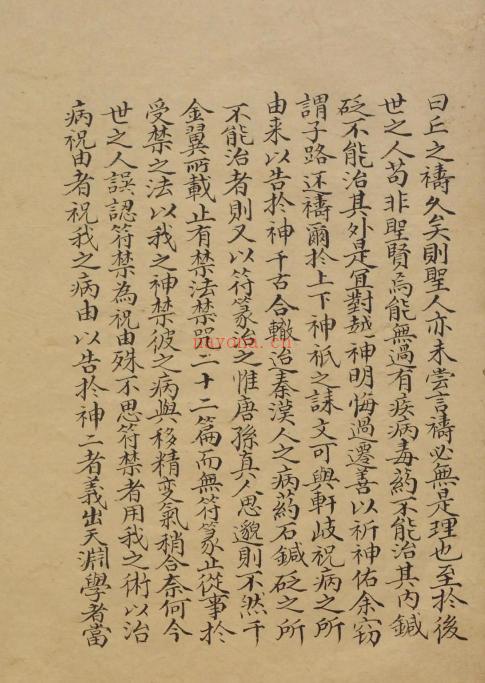 曰丘之禱久矣則聖人亦未嘗言禱必無是理也至於後
世之人苟非聖賢烏能無過有疾病毒藥不能治其內鍼
砭不能治其外是宜對越神明悔過遷善以祈神佑余竊
謂子路还禱爾於上下神祇之誄文可與軒岐祝病之所
由来以告於神千古合轍迨秦漢人之病藥石鍼砭之所
不能治者則又以符篆治之惟唐孫真人思邈則不然千
金翼所載止有禁法禁咒二十二篇而無符篆止從事於
受禁之法以我之神禁彼之病與移精变氣稍合奈何今
世之人誤認符禁為祝由殊不思符禁者用我之術以治
病祝由者祝我之病由以告於神二者義出天淵學者當
nayona.cn